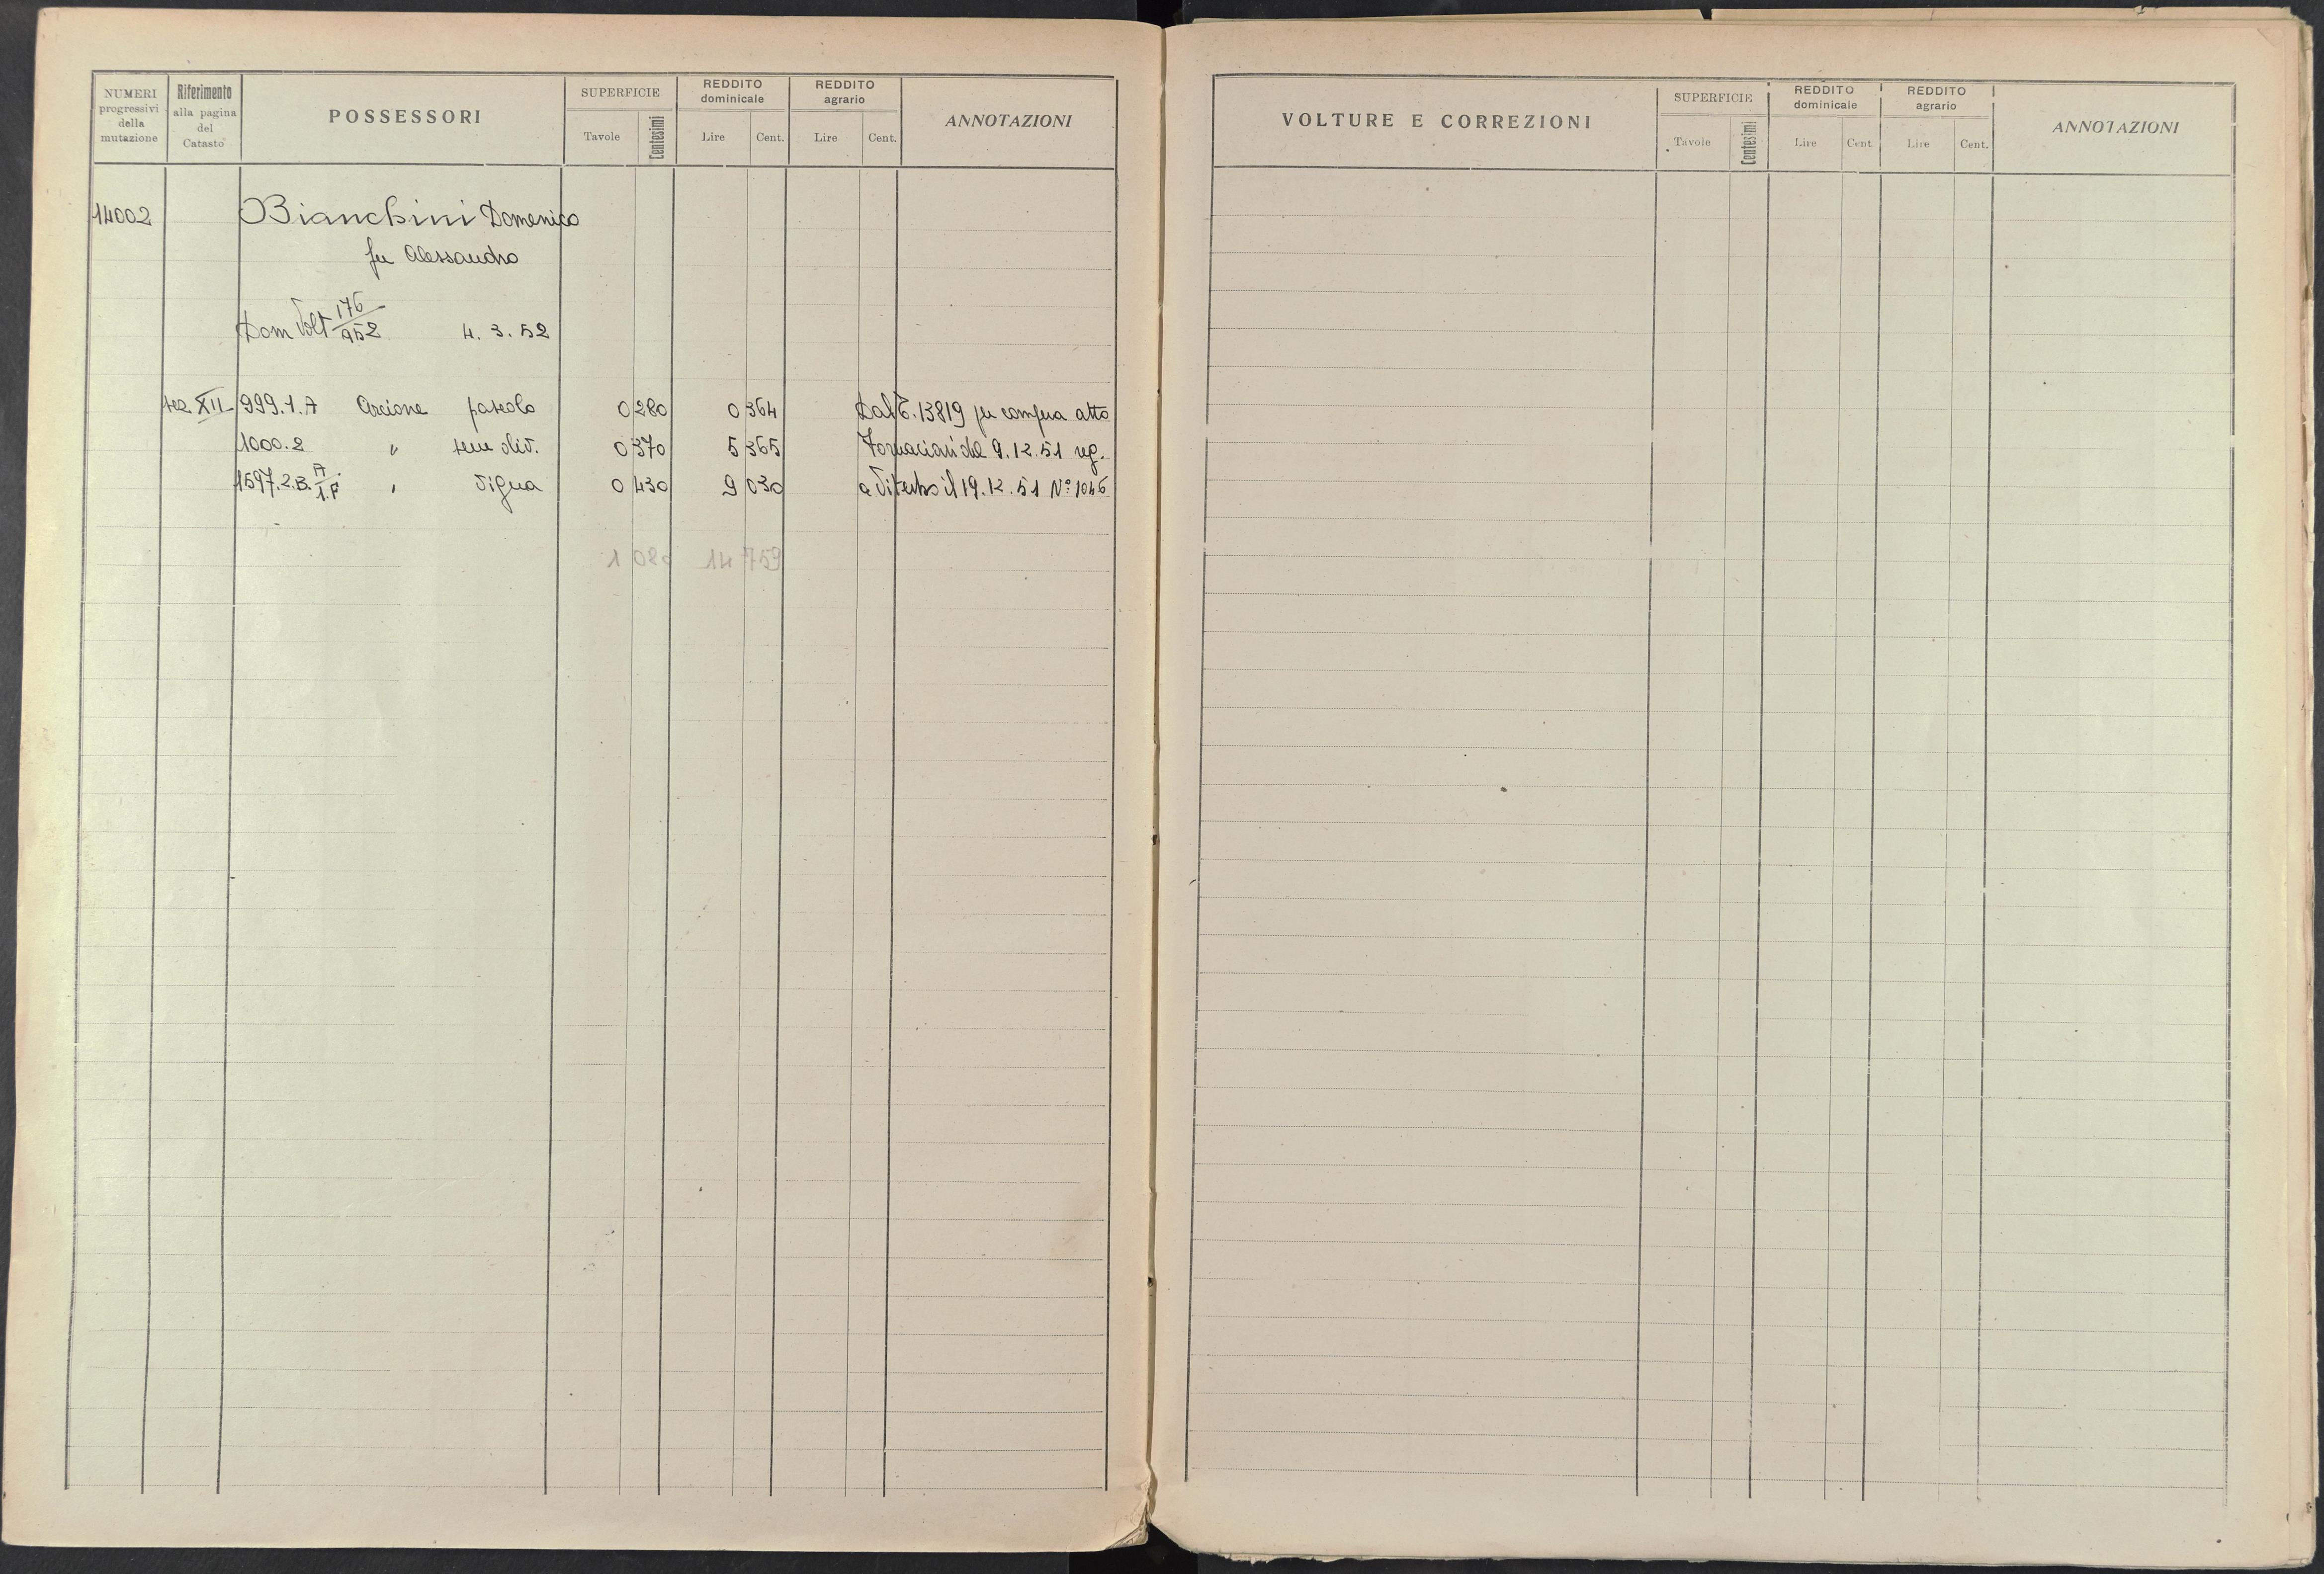 NUMERI progressivi della mutazione | Riferimento alla pagina del Catasto | POSSESSORI | SUPERFICIE Tavole Centesimi | REDDITO dominicale Lire Cent. | REDDITO agrario Lire Cent. | ANNOTAZIONI
14002 Bianchini Domenico
fu Alessandro
Dom Volt 176/952 4. 3. 52
sez XII 999.1.A Arcione pascolo 0 280 0 364 Dal C. 13819 per compra atto
1000.2 " sem oliv. 0 370 5 365 Fornaciari del 9.12.51 reg.
1597.2.B. A/1.F " Vigna 0 430 9 030 a Viterbo il 19.12.51 N° 1046
1 080 14 759
VOLTURE E CORREZIONI | SUPERFICIE Tavole Centesimi | REDDITO dominicale Lire Cent | REDDITO agrario Lire Cent. | ANNOTAZIONI